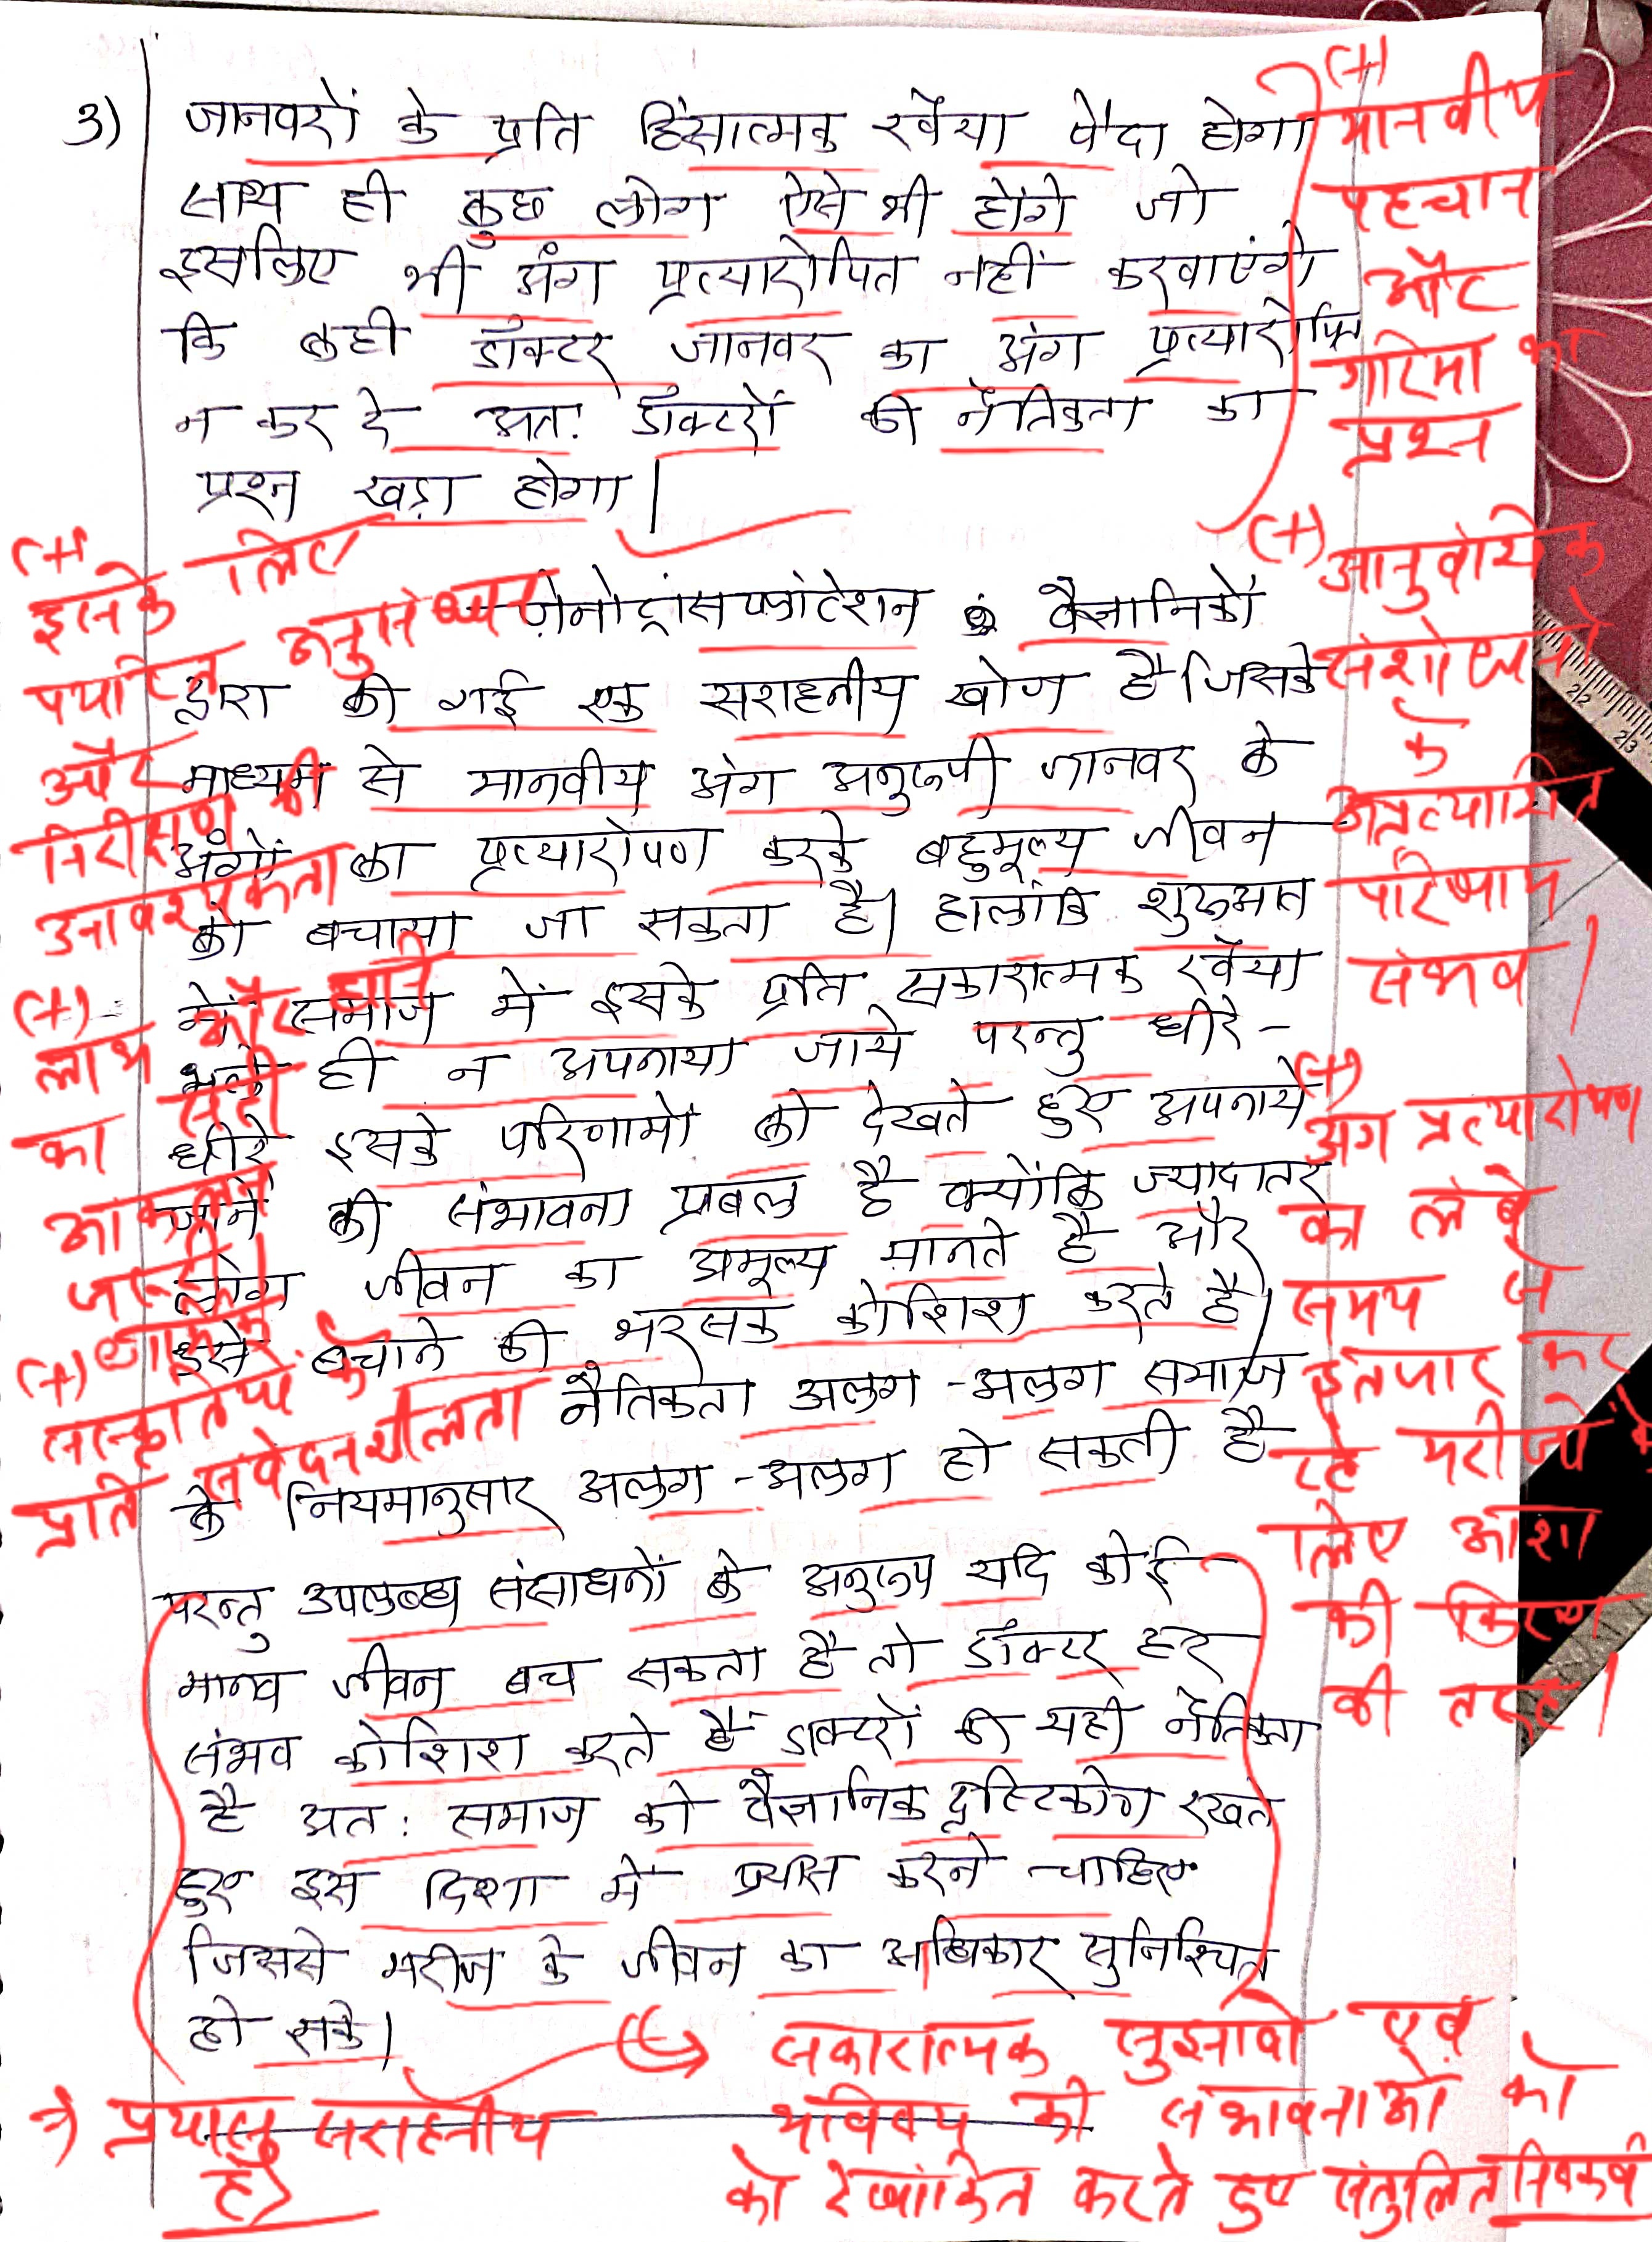 3) जानवरों के प्रति हिंसात्मक रवैया पैदा होगा
साथ ही कुछ लोग ऐसे भी होंगे जो
इसलिए भी अंग प्रत्यारोपित नहीं करवाएंगे
कि कही डॉक्टर जानवर का अंग प्रत्यारोपित
न कर दे अतः डॉक्टरों की नैतिकता का
प्रश्न खड़ा होगा।
(+)
मानवीय
पहचान
और
गरिमा का
प्रश्न
जेनोट्रांसप्लांटेशन वैज्ञानिकों
द्वारा की गई एक सराहनीय खोज है जिसके
माध्यम से मानवीय अंग अनुरूपी जानवर के
अंगों का प्रत्यारोपण करके बहुमूल्य जीवन
को बचाया जा सकता है। हालांकि शुरुआत
में समाज में इसके प्रति सकारात्मक रवैया
भले ही न अपनाया जाये परन्तु धीरे-
धीरे इसके परिणामों को देखते हुए अपनाये
जाने की संभावना प्रबल है क्योंकि ज्यादातर
लोग जीवन का अमूल्य मानते है और
इसे बचाने की भरसक कोशिश करते है।
नैतिकता अलग-अलग समाज
के नियमानुसार अलग-अलग हो सकती है
परन्तु उपलब्ध संसाधनों के अनुरूप यदि कोई
मानव जीवन बच सकता है तो डॉक्टर हर
संभव कोशिश करते हैं डाक्टरों की यही नैतिकता
है अत: समाज को वैज्ञानिक दृष्टिकोण रखते
हुए इस दिशा में प्रयास करने चाहिए
जिससे मरीज के जीवन का अधिकार सुनिश्चित
हो सके।
(+)
इसके लिए
पर्याप्त अनुसंधान
और
निरीक्षण की
आवश्यकता
(+)
लाभ और हानि
का सही
आकलन
जरूरी।
(+) धार्मिक
संस्कृतियों के
प्रति संवेदनशीलता
(+) आनुवांशिक
संशोधनों
के
अप्रत्याशित
परिणाम
संभव।
(+)
अंग प्रत्यारोपण
का लंबे
समय से
इंतजार कर
रहे मरीजों के
लिए आशा
की किरण
की तरह।
सकारात्मक सुझावों एवं
भविष्य की संभावनाओं को
को रेखांकित करते हुए संतुलित निष्कर्ष
प्रयास सराहनीय
है।
22 23